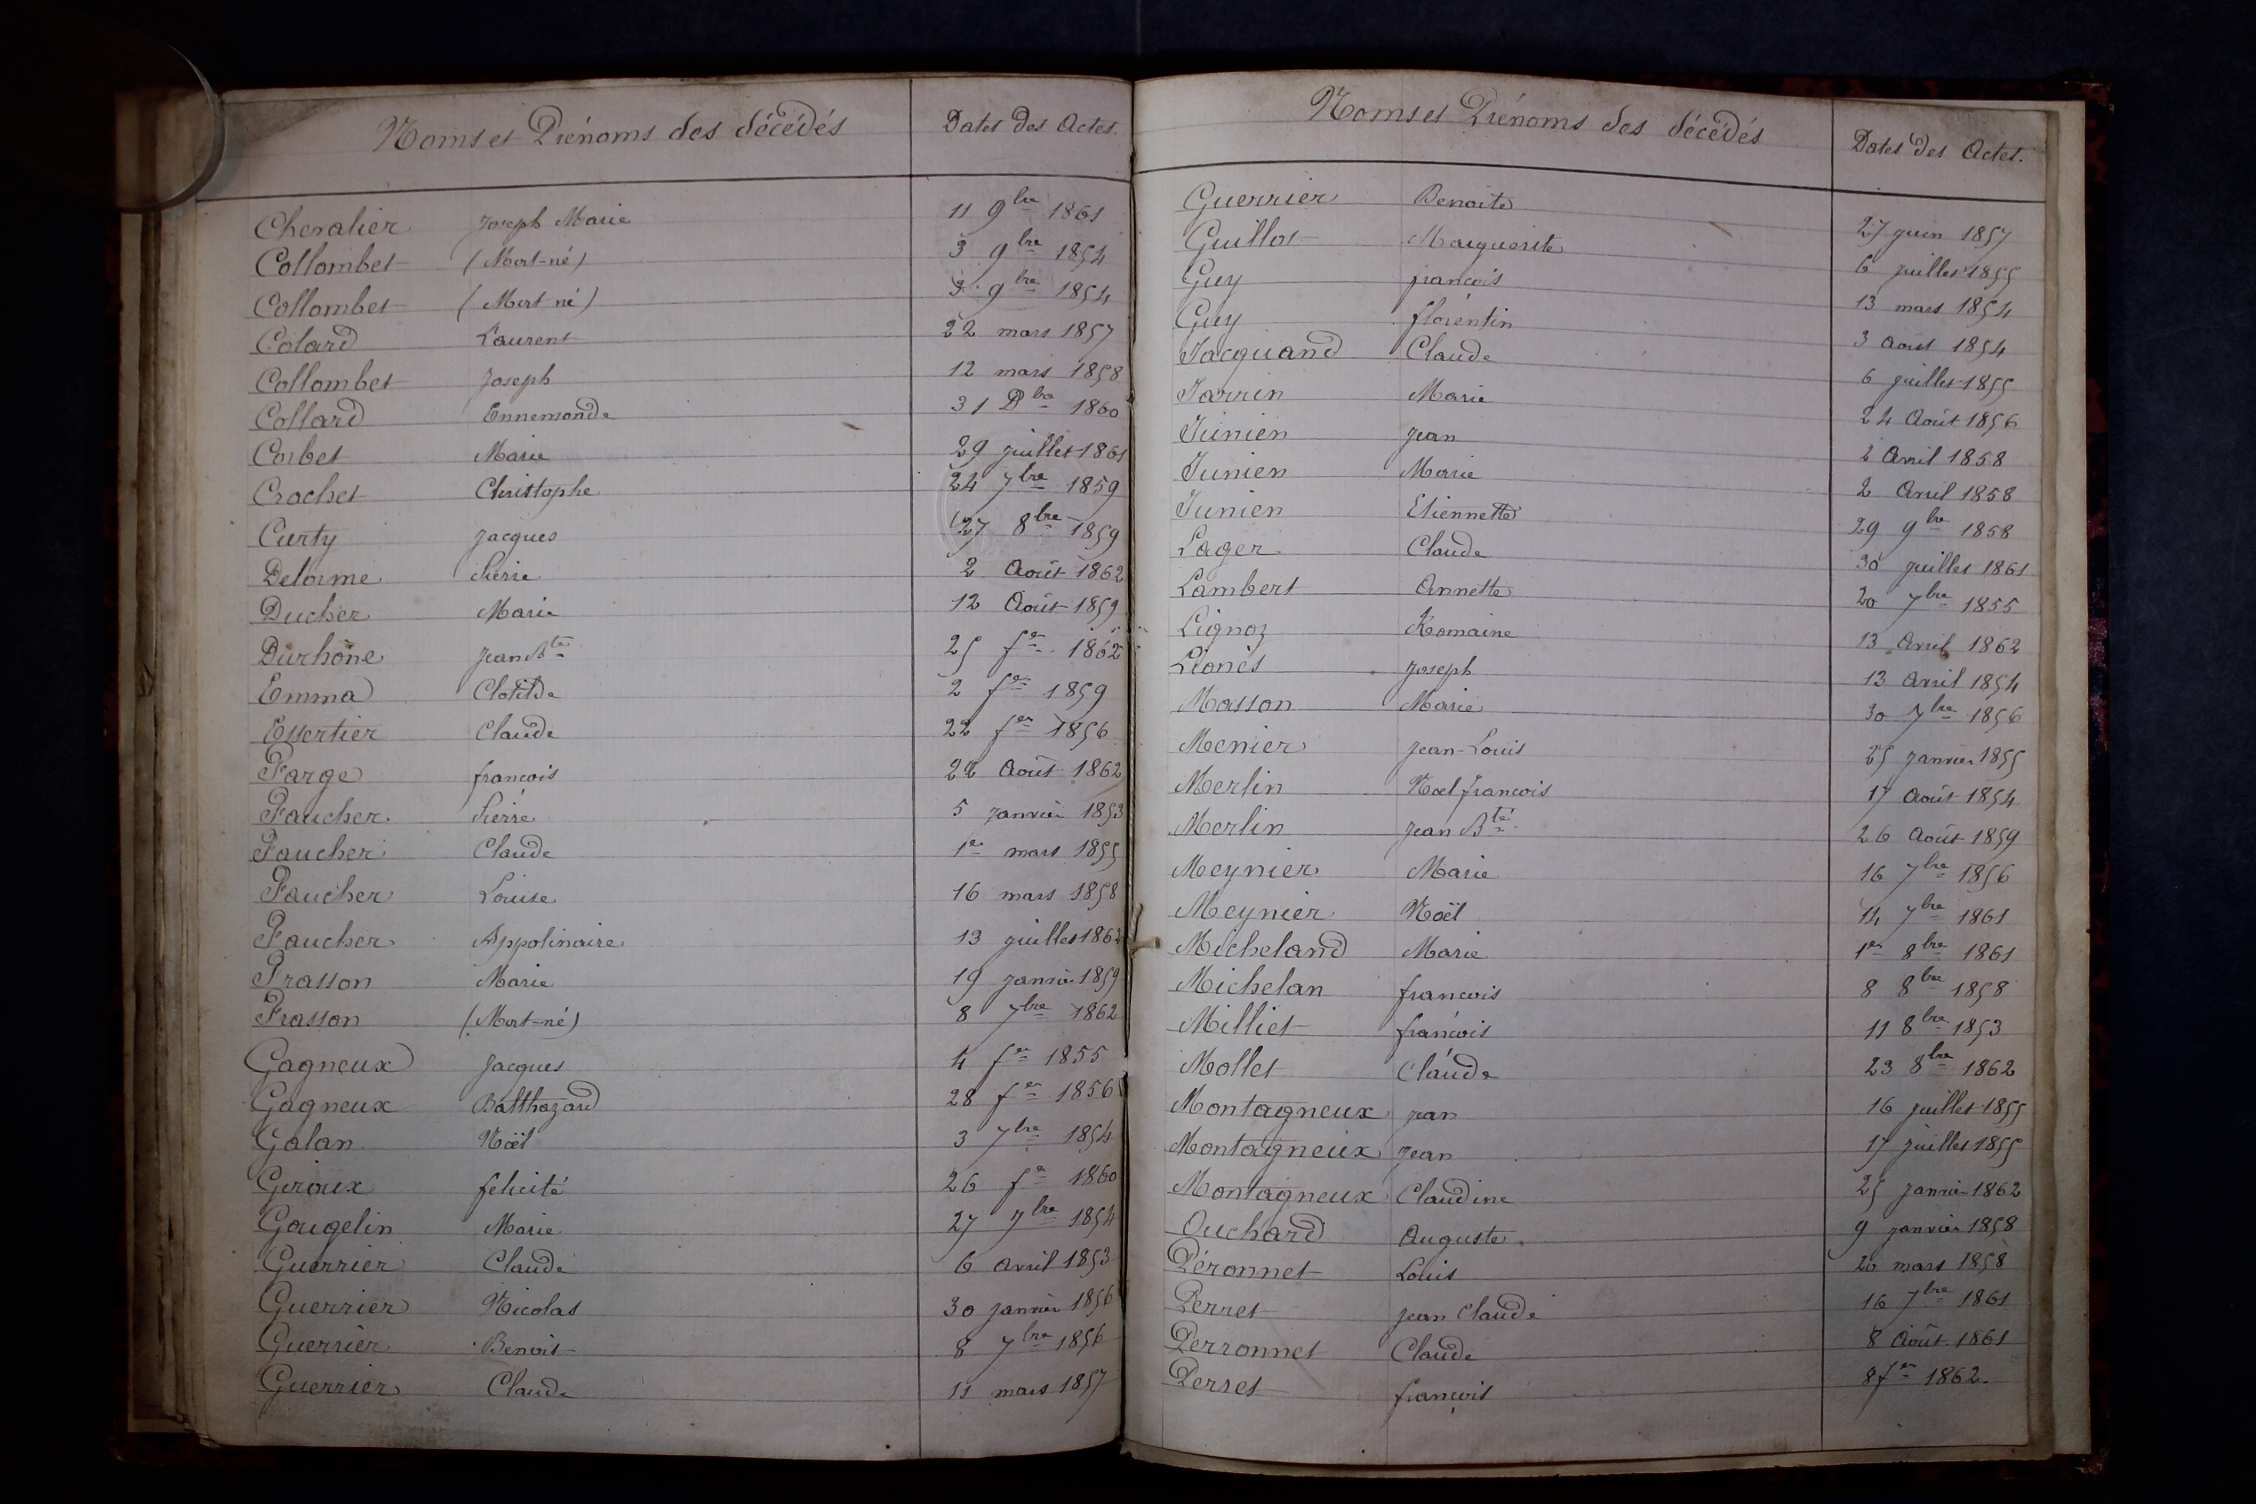 Noms et Prénoms des décédés Dates des Actes.
Chevalier Joseph Marie 11 9bre 1861
Collombet (Mort-né) 3 9bre 1854
Collombet (Mort né) 3 9bre 1854
Colard Laurent 22 mars 1857
Collombet Joseph 12 mars 1858
Collard Ennemonde 31 Dbre 1860
Corbet Marie 29 juillet 1861
Crochet Christophe 24 7bre 1859
Curty Jacques 27 8bre 1859
Delorme Pierre 2 Août 1862
Ducher Marie 12 Août 1859
Durhône Jean Bte 25 fer 1862
Emma Clotilde 2 fer 1859
Essertier Claude 22 fer 1856
Farge françois 22 Août 1862
Faucher Pierre 5 Janvier 1853
Faucher Claude 1er mars 1855
Faucher Louise 16 mars 1858
Faucher Appolinaire 13 juillet 1862
Frasson Marie 19 Janvier 1859
Frasson (Mort-né) 8 7bre 1862
Gagneux Jacques 4 fer 1855
Gagneux Balthazard 28 fer 1856
Galan Noël 3 7bre 1854
Giroux felicité 26 fer 1860
Gougelin Marie 27 7bre 1854
Guerrier Claude 6 Avril 1853
Guerrier Nicolas 30 Janvier 1856
Guerrier Benoit 8 7bre 1856
Guerrier Claude 11 mars 1857
Noms et Prénoms des décédés Dates des Actes.
Guerrier Benoite 27 juin 1857
Guillot Marguerite 6 juillet 1855
Guy francois 13 mars 1854
Guy florentin 3 Août 1854
Jacquand Claude 6 juillet 1855
Jarrin Marie 24 Août 1856
Junien Jean 2 Avril 1858
Junien Marie 2 Avril 1858
Junien Etiennette 29 9bre 1858
Lager Claude 30 juillet 1861
Lambert Annette 20 7bre 1855
Lignoz Romaine 13 Avril 1862
Lionès Joseph 13 Avril 1854
Masson Marie 30 7bre 1856
Menier Jean-Louis 25 Janvier 1855
Merlin Noel francois 17 Août 1854
Merlin Jean Bte 26 Août 1859
Meynier Marie 16 7bre 1856
Meynier Noël 14 7bre 1861
Micheland Marie 1er 8bre 1861
Michelan francois 8 8bre 1858
Milliet francois 11 8bre 1853
Mollet Claude 23 8bre 1862
Montagneux Jean 16 juillet 1855
Montagneux Jean 17 juillet 1855
Montagneux Claudine 25 Janvier 1862
Ouchard Auguste 9 Janvier 1858
Péronnet Louis 20 mars 1858
Perret Jean Claude 16 7bre 1861
Perronnet Claude 8 Août 1861
Perret françois 8 fer 1862